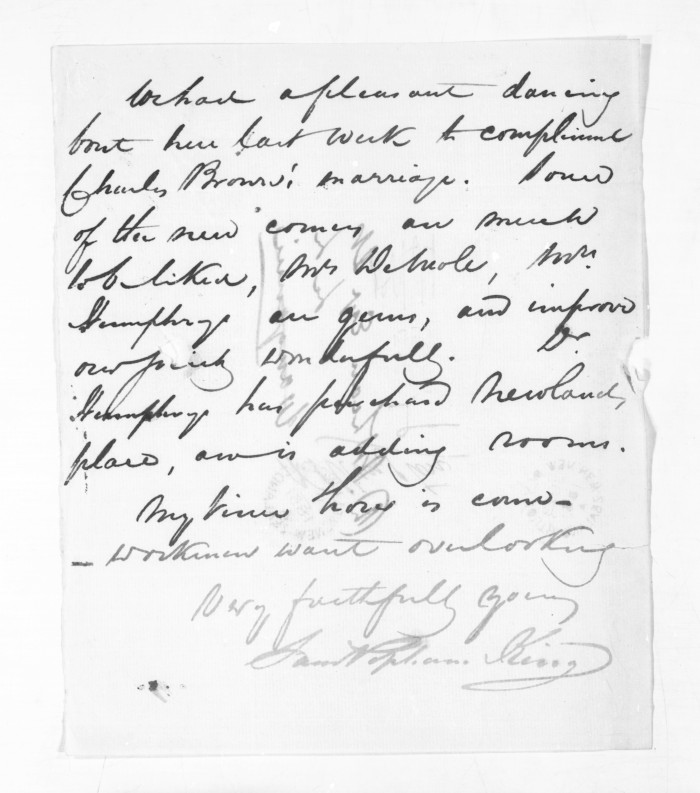 We had a pleasant dancing
bout here last week to compliment
Charles Brown's marriage. Some
of the new comers are much
to be liked, Mrs DeNiole, Mrs
Humphrys are gems, and improve
our society wonderfully. Dr
Humphrys has purchased Newlands
place, and is adding rooms.
My time is come -
- workmen want overlooking
Very faithfully yours
Saml Popham King